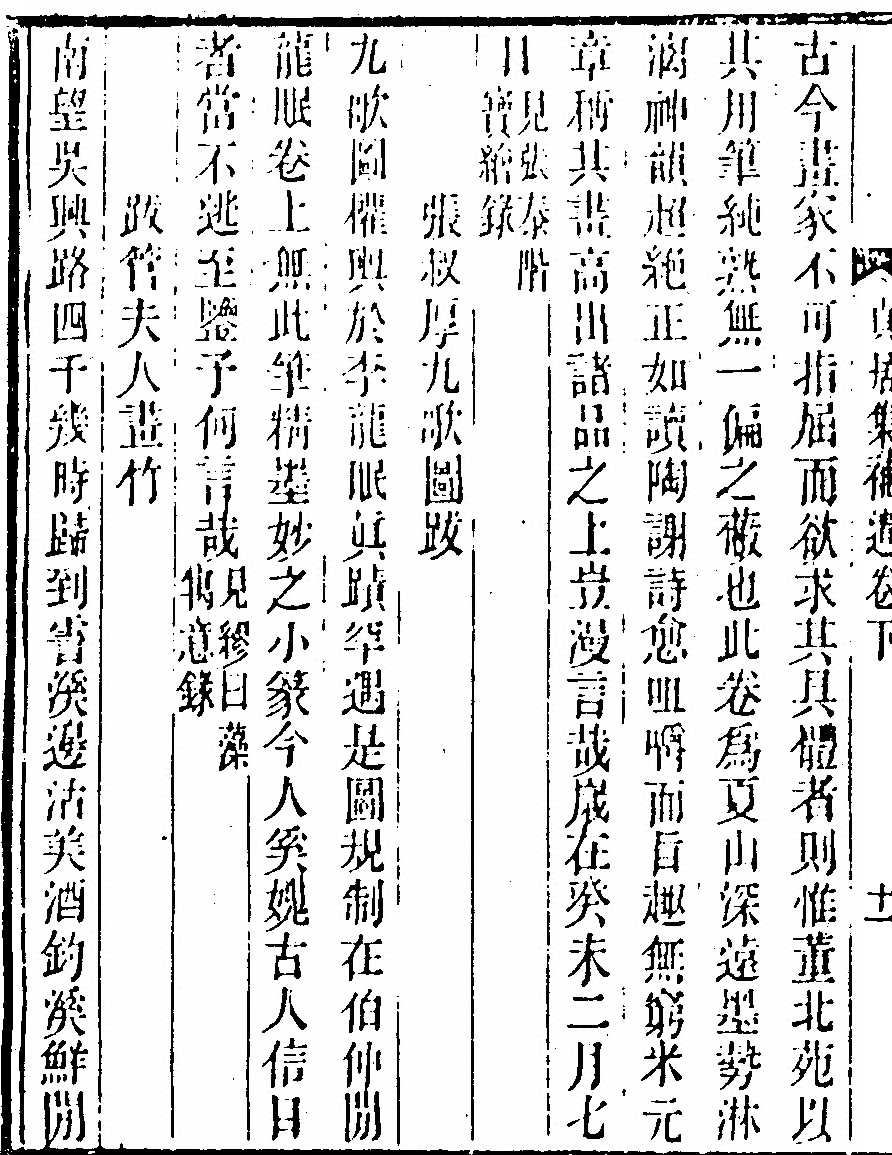 貞居集補遺卷下
十一
古今畫家不可指屈而欲求其具體者則惟董北苑以
其用筆純熟無一偏之蔽也此卷爲夏山深遠墨勢淋
漓神韻超絶正如讀陶謝詩愈咀嚼而旨趣無窮米元
章稱其畫高出諸品之上豈漫言哉歲在癸未二月七
日見張泰階
寶繪錄
張叔厚九歌圖跋
九歌圖權輿於李龍眠眞蹟罕遇是圖規制在伯仲閒
龍眠卷上無此筆精墨妙之小篆今人奚媿古人信日
者當不逃至鑒予何言哉見繆曰藻
寓意錄
跋管夫人畫竹
南望吳興路四千幾時歸到霅溪邊沽美酒釣溪鮮閒